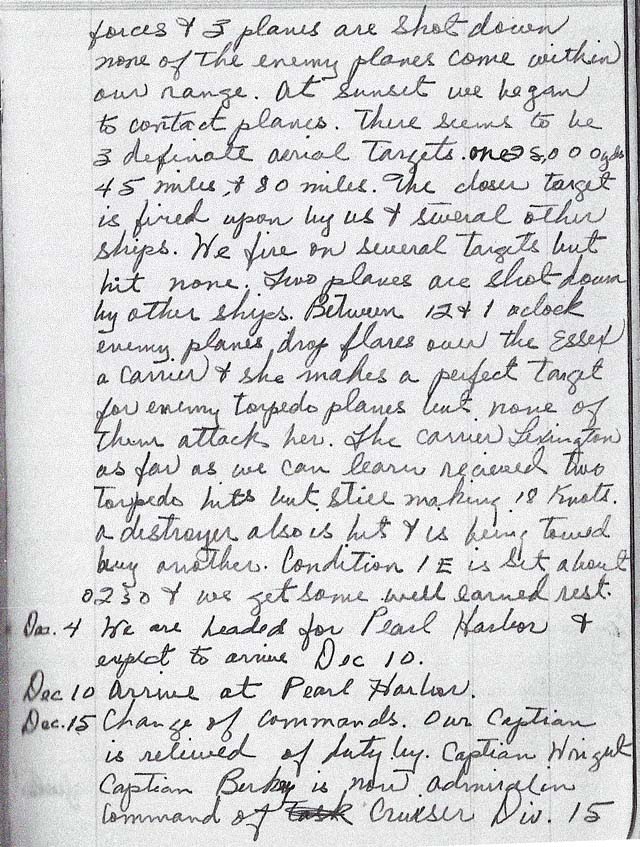 forces & 3 planes are shot down
none of the enemy planes come within
our range. At sunset we began
to contact planes. There seems to be
3 definate aerial Targets. one 25,000 yds
45 miles, & 80 miles. The closer target
is fired upon by us & several other
ships. We fire on several targets but
hit none. Two planes are shot down
by other ships. Between 12 & 1 oclock
enemy planes drop flares over the Essex
a carrier & she makes a perfect target
for enemy torpedo planes but none of
them attack her. The carrier Lexington
as far as we can learn recieved two
Torpedo hits but still making 18 Knots.
a destroyer also is hit & is being towed
buy another. Condition 1E is set about
0230 & we get some well earned rest.
Dec. 4 We are headed for Pearl Harbor &
expect to arrive Dec 10.
Dec 10 Arrive at Pearl Harbor.
Dec. 15 Change of commands. Our Captian
is relieved of duty by. Captian Wright
Captian Berkey is now admiral in
command of task Cruiser Div. 15